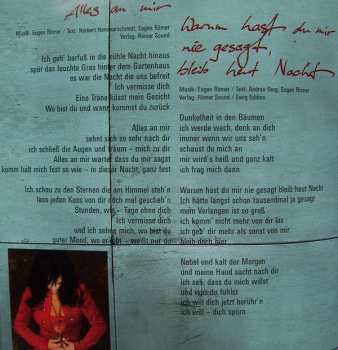 Alles an mir
Musik: Eugen Römer / Text: Norbert Hammerschmidt, Eugen Römer
Verlag: Römer Sound
Ich geh' barfuß in die kühle Nacht hinaus
spür das feuchte Gras hinter dem Gartenhaus
es war die Nacht die uns befreit
Ich vermisse dich
Eine Träne küsst mein Gesicht
Wo bist du und wann kommst du zurück
Alles an mir
sehnt sich so sehr nach dir
ich schließ die Augen und träum – mich zu dir
Alles an mir wartet dass du mir sagst
komm halt mich fest so wie – in dieser Nacht, ganz fest
Ich schau zu den Sternen die am Himmel steh'n
lass jeden Kuss von dir noch mal gescheh'n
Stunden, wie – Tage ohne dich
Ich vermisse dich
und ich sehne mich, wo bist du
guter Mond, wo er geht – weißt nur du
Warum hast du mir
nie gesagt,
bleib heut Nacht
Musik: Eugen Römer / Text: Andrea Berg, Eugen Römer
Verlag: Römer Sound / Ewig Edition
Dunkelheit in den Bäumen
ich werde wach, denk an dich
immer wenn wir uns seh'n
schaust du mich an
mir wird's heiß und ganz kalt
ich frag mich dann
Warum hast du mir nie gesagt bleib heut Nacht
Ich hätte längst schon tausendmal ja gesagt
mein Verlangen ist so groß
ich komm' nicht mehr von dir los
ich geb' dir mehr als sonst von mir
bleib doch hier
Nebel und kalt der Morgen
und meine Hand sucht nach dir
ich seh, dass du mich willst
und was du fühlst
ich will dich jetzt berühr'n
ich will – dich spürn